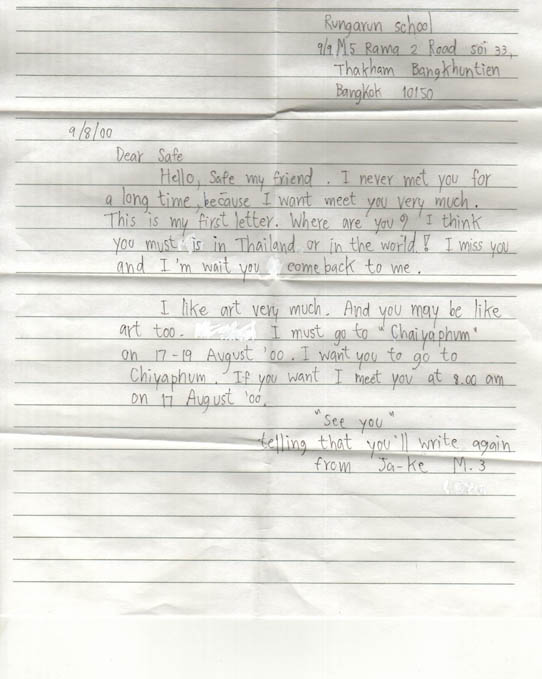 Rungarun school
9/9 M5 Rama 2 Road soi 33,
Thakham Bangkhuntien
Bangkok 10150
9/8/00
Dear Safe
Hello, Safe my friend. I never met you for
a long time, because I want meet you very much.
This is my first letter. Where are you? I think
you must is in Thailand or in the world! I miss you
and I'm wait you come back to me.
I like art very much. And you may be like
art too. I must go to "Chaiyaphum"
on 17-19 August '00. I want you to go to
Chiyaphum. If you want I meet you at 8.00 am
on 17 August '00.
"See you"
telling that you'll write again
from Ja-ke M.3